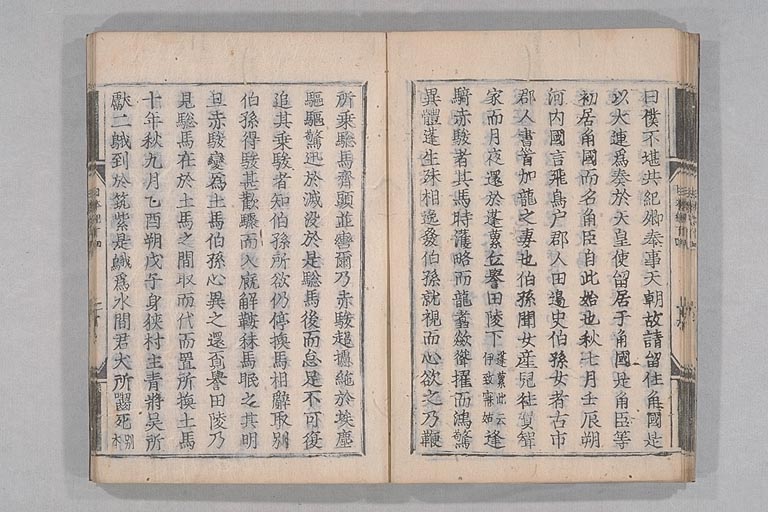 曰僕不堪共紀卿奉事天朝故請留住角國是
以大連爲奏於天皇使留居于角國是角臣等
初居角國而名角臣自此始也秋七月壬辰朔
河内國言飛鳥戸郡人田邊史伯孫女者古市
郡人書首加龍之妻也伯孫聞女産兒往賀聟
家而月夜還於蓬蔂丘譽田陵下蓬蔂此云伊致寐姑逢
騎赤駿者其馬時濩略而龍翥欻聳擢而鴻驚
異體蓬生殊相逸發伯孫就視而心欲之乃鞭
所乘驄馬齊頭並轡爾乃赤駿超攄絶於埃塵
驅騖迅於滅没於是驄馬後而怠足不可復
追其乘駿者知伯孫所欲仍停換馬相辭取別
伯孫得駿甚歡驟而入廐解鞍秣馬眠之其明
旦赤駿變爲土馬伯孫心異之還覓譽田陵乃
見驄馬在於土馬之間取而代而置所換土馬
十年秋九月乙酉朔戊子身狹村主青將呉所
獻二鵝到於筑紫是鵝爲水間君犬所囓死別本